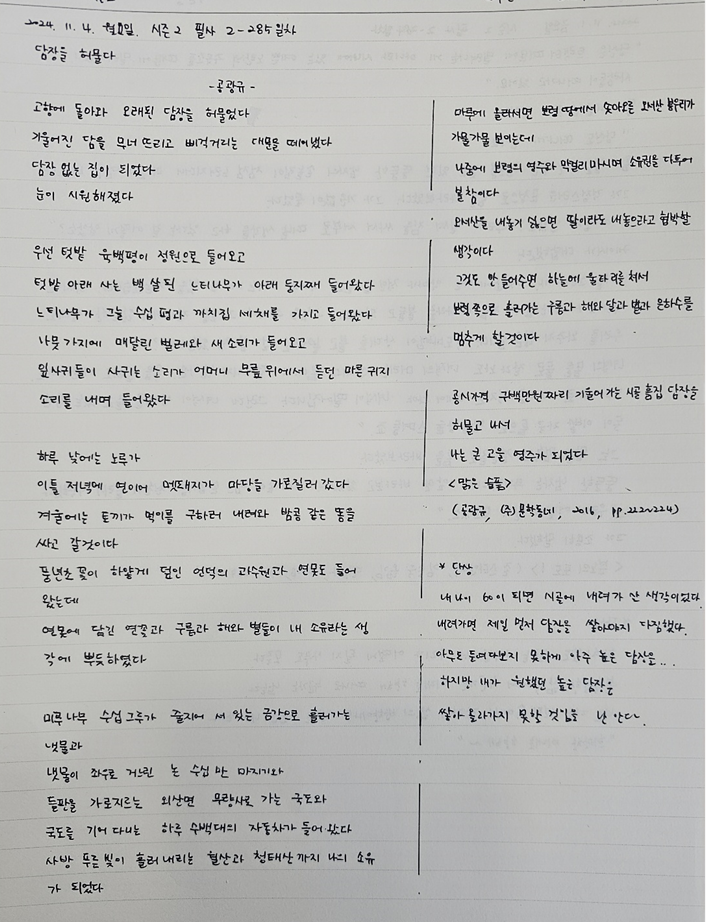 2024. 11. 4. 월요일. 시즌 2 필사 2-285일차
담장을 허물다
-공광규-
고향에 돌아와 오래된 담장을 허물었다
기울어진 담을 무너뜨리고 삐걱거리는 대문을 떼어냈다
담장 없는 집이 되었다
눈이 시원해졌다
우선 텃밭 육백평이 정원으로 들어오고
텃밭 아래 사는 백 살 된 느티나무가 아래 둥지째 들어왔다
느티나무가 그늘 수십 평과 까치집 세채를 가지고 들어왔다
나뭇가지에 매달린 벌레와 새 소리가 들어오고
잎사귀들이 사귀는 소리가 어머니 무릎 위에서 듣던 마른 귀지
소리를 내며 들어왔다
하루 낮에는 노루가
이틀 저녁에 연이어 멧돼지가 마당을 가로질러 갔다
겨울에는 토끼가 먹이를 구하러 내려와 밤콩 같은 똥을
싸고 갈것이다
풍년초 꽃이 하얗게 덮인 언덕의 과수원과 연못도 들어
왔는데
연못에 담긴 연꽃과 구름과 해와 별들이 내 소유라는 생
각에 뿌듯하였다
미루나무 수십 그루가 줄지어 서 있는 금강으로 흘러가는
냇물과
냇물이 좌우로 거느린 논 수십 만 마지기와
들판을 가로지르는 외산면 무량사로 가는 국도와
국도를 기어 다니는 하루 수백대의 자동차가 들어왔다
사방 푸른빛이 흘러내리는 월산과 청태산까지 나의 소유
가 되었다
마루에 올라서면 보령 땅에서 솟아오른 오서산 봉우리가
가물가물 보이는데
나중에 보령의 영주와 막걸리 마시며 소유권을 다투어
볼 참이다
오서산을 내놓기 싫으면 딸이라도 내놓으라고 협박할
생각이다
그것도 안 들어주면 하늘에 울타리를 쳐서
보령 쪽으로 흘러가는 구름과 해와 달과 별과 은하수를
멈추게 할 것이다
공시가격 구백만원짜리 기울어가는 시골 흙집 담장을
허물고 나서
나는 큰 고을 영주가 되었다
<맑은 슬픔>
(공광규, (주)문학동네, 2016, pp.222~224)
* 단상
내 나이 60이 되면 시골에 내려가 산 생각이었다.
내려가면 제일 먼저 담장을 쌓아야지 다짐했다.
아무도 들여다보지 못하게 아주 높은 담장을...
하지만 내가 원했던 높은 담장을
쌓아 올라가지 못할 것임을 난 안다.